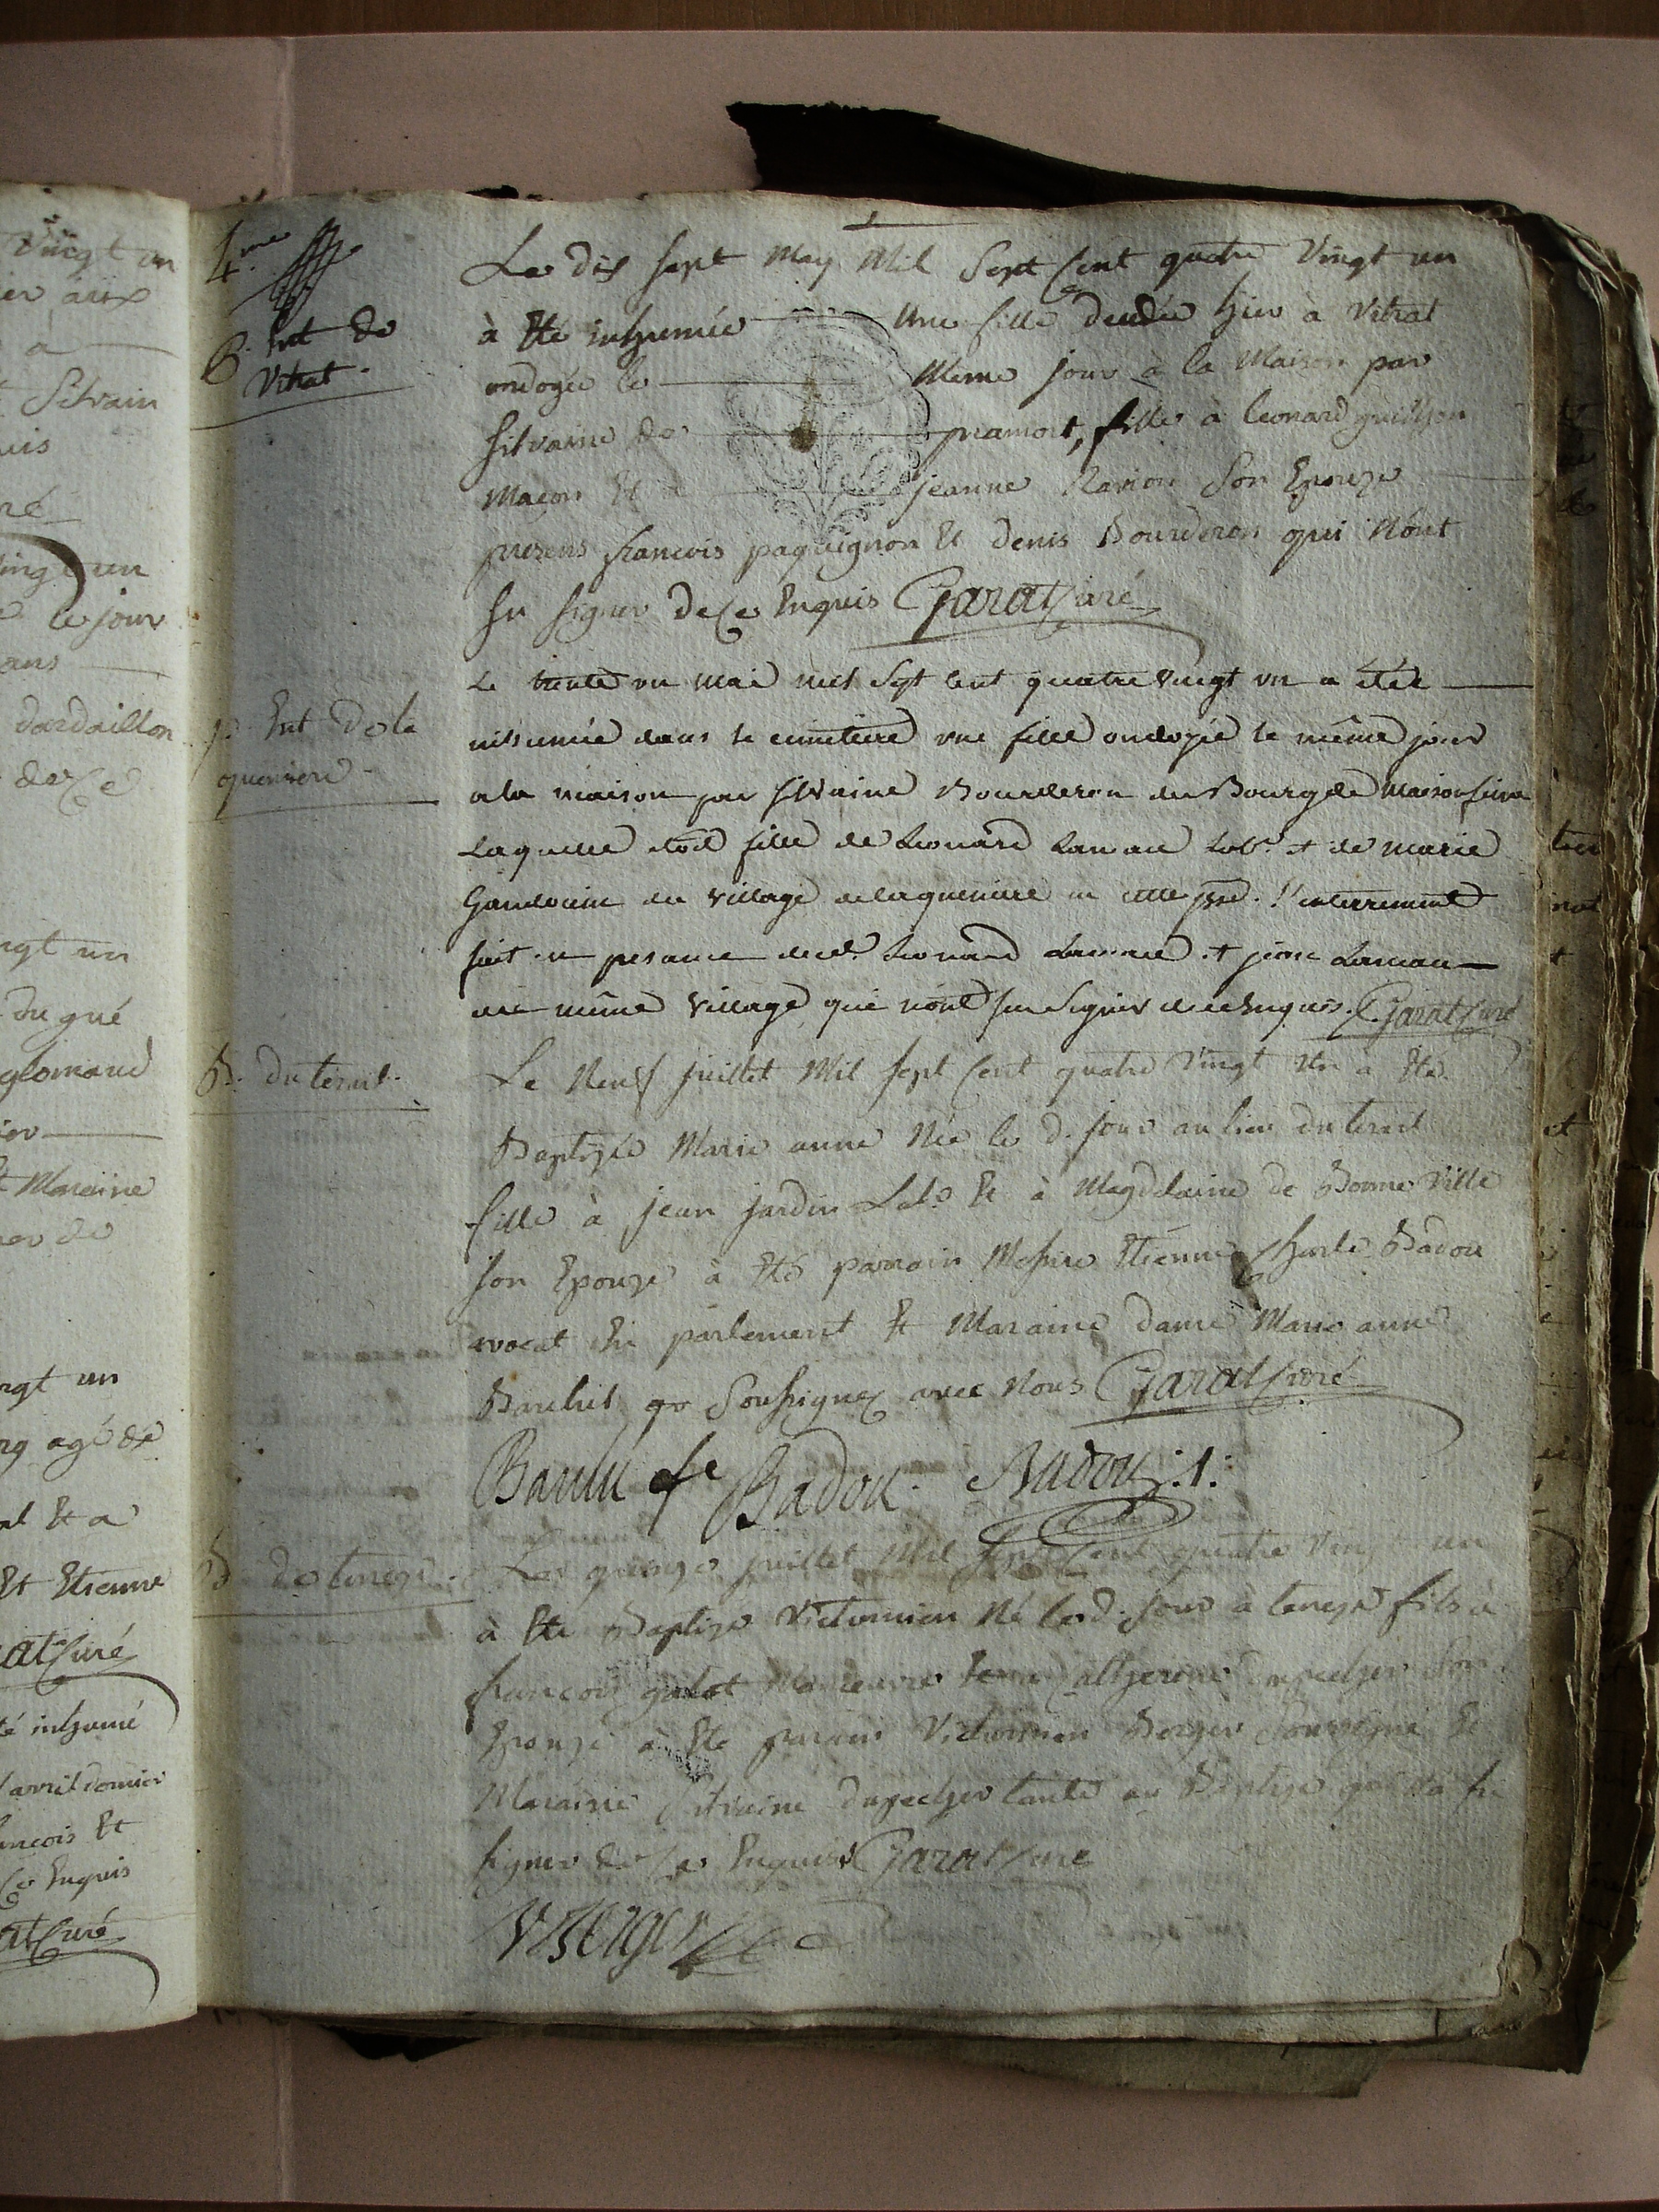 Vingt un
er aux
a
Silvain
uis
ré
Vingt un
le jour
ans
dardaillon
de Ce
ngt un
du gué
glomaud
t Maraine
er de
ngt un
rg agé de
al Et a
Et Etienne
rat Curé
té inhumé
avril dernier
ancois Et
Ce Enquis
at Curé
4.me
Ent de
Vitrat.
Le dix sept May Mil Sept Cent quatre Vingt un
à Eté inhumée Une fille decedée hier à Vitrat
ondoyée le Meme jour à la Maison par
Silvaine de pramort, fille à leonard guilhon
Maçon Et a jeanne Ravion Son Epouze
prezens francois paquignon Et denis Bourderon qui N'ont
Su Signer de Ce Enquis Garat Curé
Ent de la
queniere
Le trente un mai mil Sept Cent quatre Vingt un a été
inhumée dans le cimetiere une fille ondoyée le même jour
a la maison par Silvaine Bourderon du Bourg de Maisonfeine
Laquelle étoit fille de Leonard Lamaud Lab.r et de marie
Gaudouin du village de laqueniere en cette psse. l'enterrement
fait en presance dud. Leonard Lamaud et
du même Village qui n'ont Su Signer de ce Enquis. Garat Curé
B. du terail.
Le Neuf juillet Mil Sept Cent quatre Vingt un a Eté
Baptizée Marie anne Née le d. jour au lieu du terail
fille à jean jardin Lab.r Et à Magdelaine de Bonneville
Son Epouze à Eté parrain Messire Etienne Charle Badou
avocat En parlement Et Maraine dame Marie anne
qui Soussignez avec Nous Garat Curé
Badou. Badou. 1.
B de teneze.
Le quinze juillet Mil Sept Cent quatre Vingt un
à Eté Baptizé Victurnien Né le d. jour à teneze fils à
francois galat Manœuvre Et a Catherine dupecher Son
Epouze à Eté parain Victurnien Berger Soussigné Et
Maraine Silvaine dupecher tante au Baptizé qui N'a Su
Signer de Ce Enquis Garat Curé
V Berger